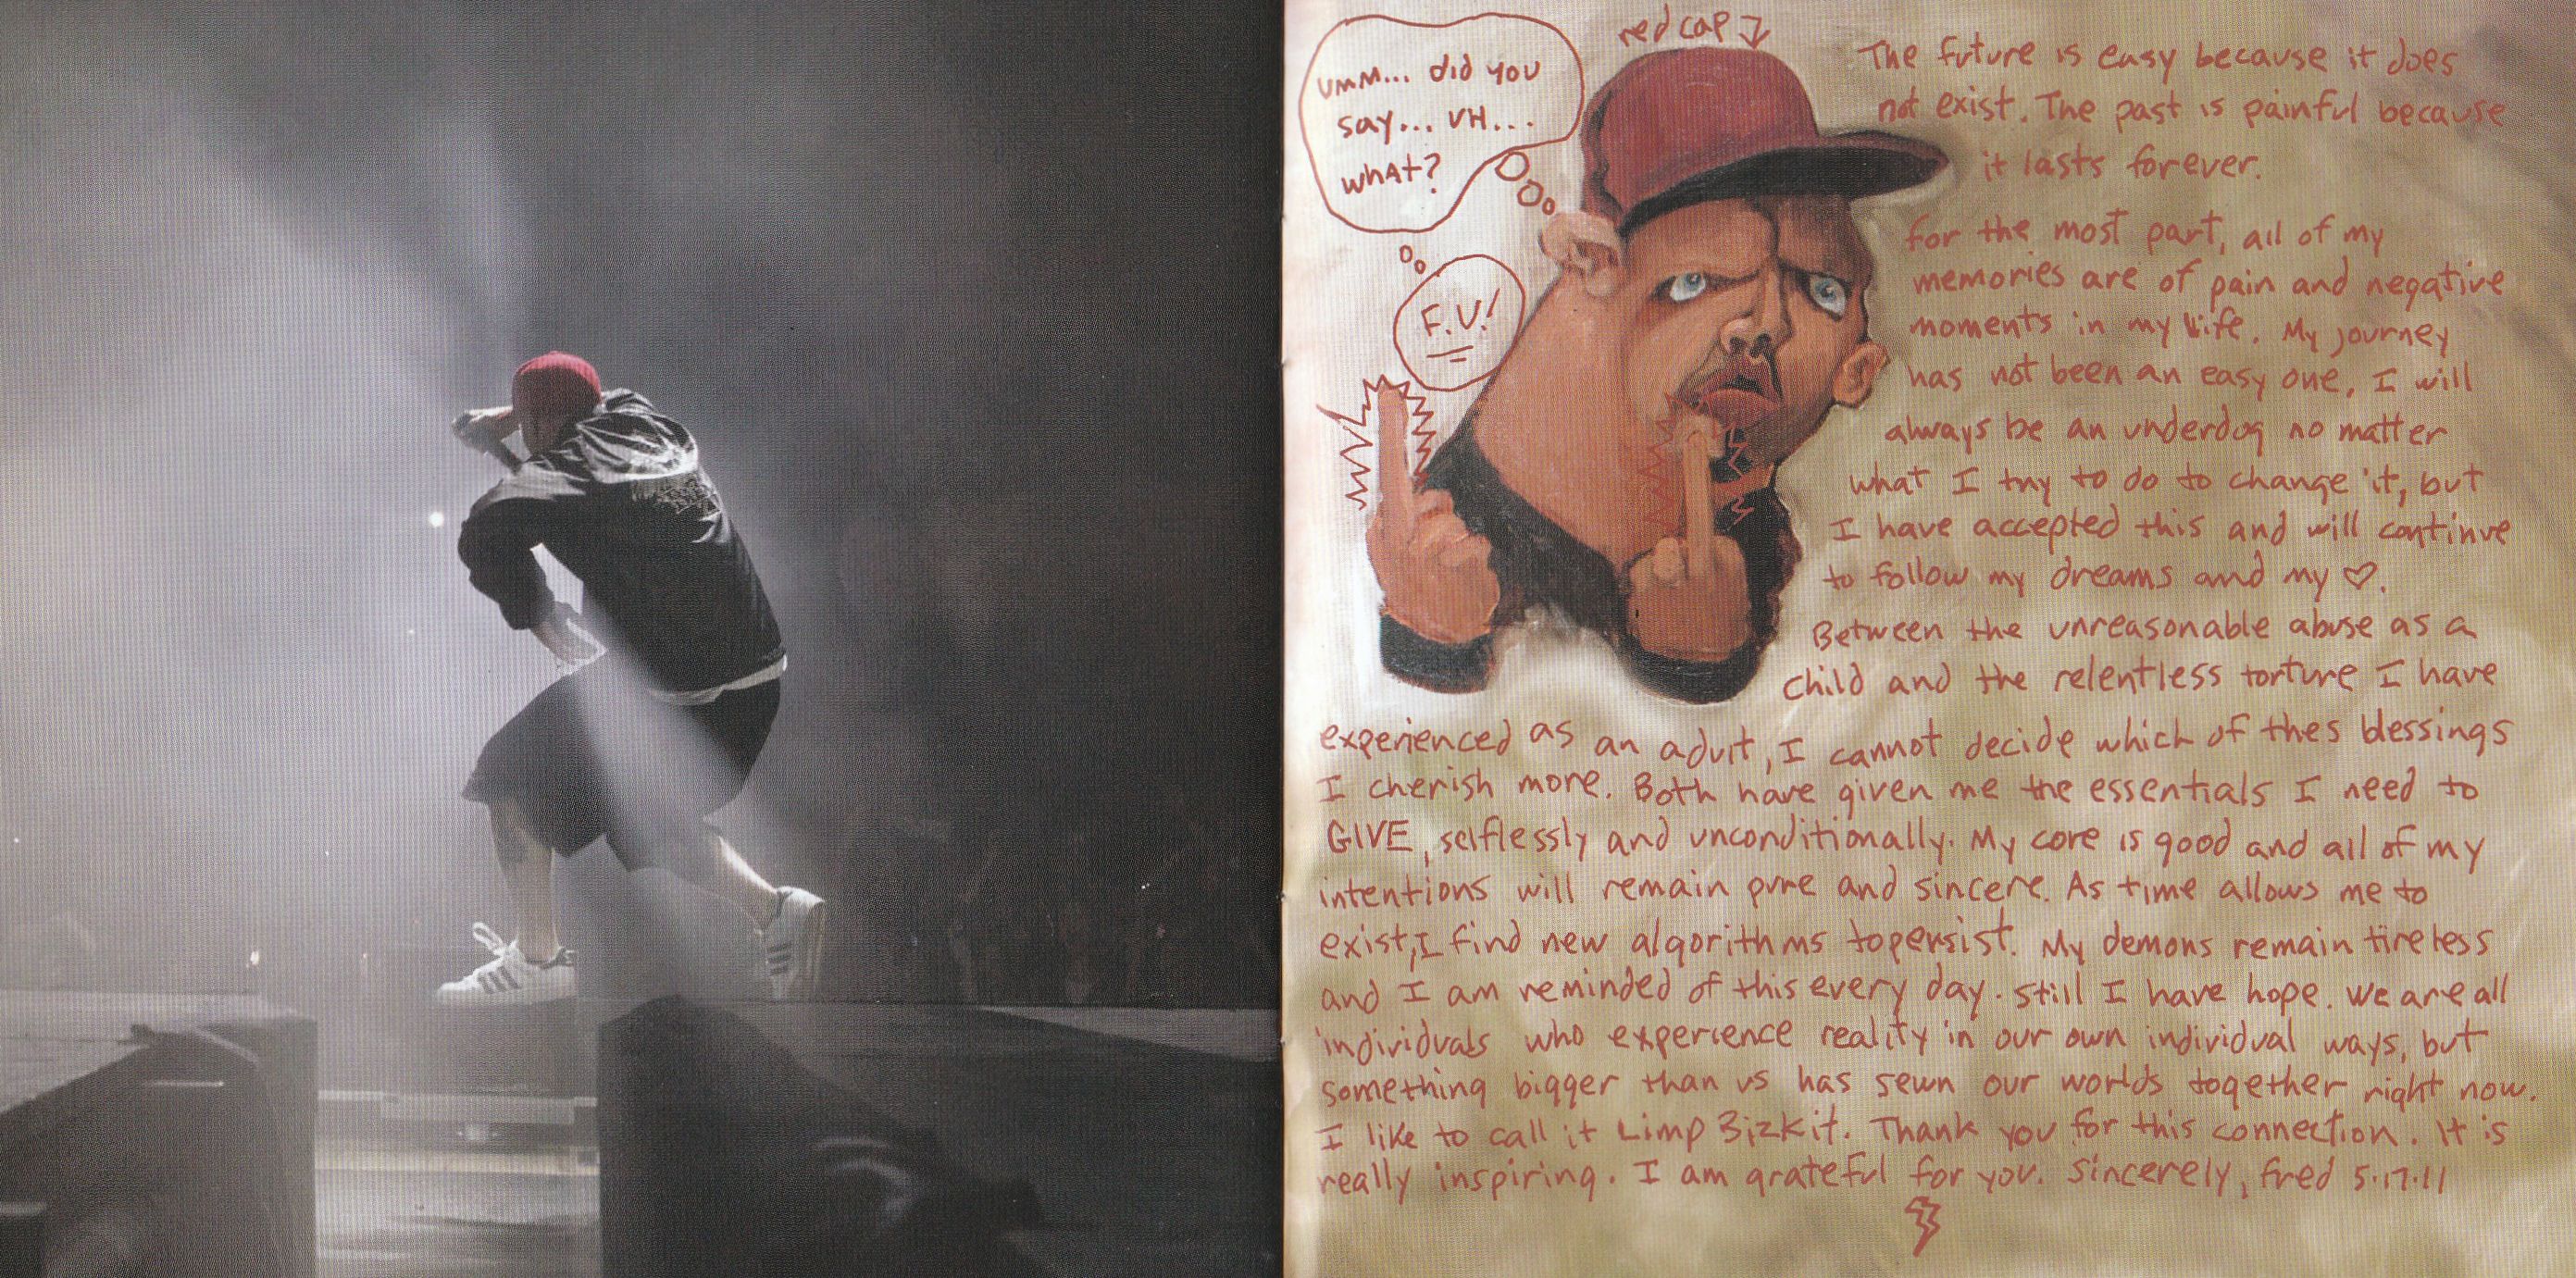 red cap
umm... did you
say... UH...
what?
F.U.!
The future is easy because it does
not exist. The past is painful because
it lasts forever.
for the most part, all of my
memories are of pain and negative
moments in my life. My journey
has not been an easy one, I will
always be an underdog no matter
what I try to do to change it, but
I have accepted this and will continue
to follow my dreams and my ♡.
Between the unreasonable abuse as a
child and the relentless torture I have
experienced as an adult, I cannot decide which of thes blessings
I cherish more. Both have given me the essentials I need to
GIVE, selflessly and unconditionally. My core is good and all of my
intentions will remain pure and sincere. As time allows me to
exist, I find new algorithms to persist. My demons remain tireless
and I am reminded of this every day. still I have hope. We are all
individuals who experience reality in our own individual ways, but
something bigger than us has sewn our worlds together right now.
I like to call it Limp Bizkit. Thank you for this connection. It is
really inspiring. I am grateful for you. Sincerely, fred 5.17.11